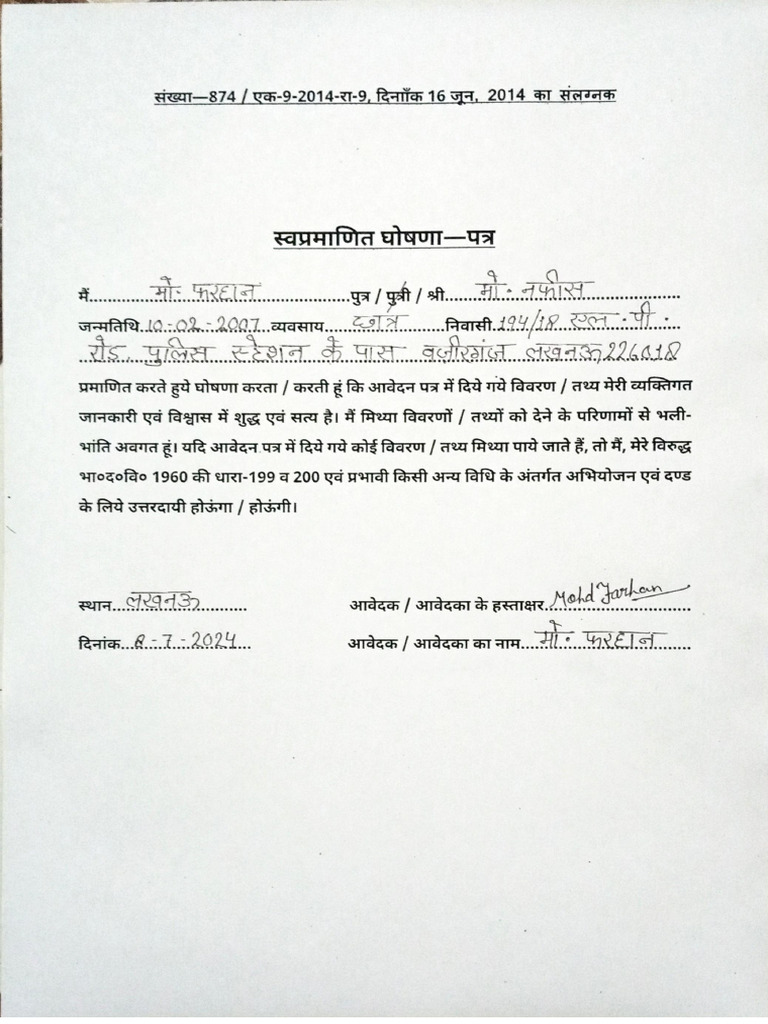 संख्या—874 / एक-9-2014-रा-9, दिनाँक 16 जून, 2014 का संलग्नक
स्वप्रमाणित घोषणा—पत्र
मैं मो॰ फरहान पुत्र / पुत्री / श्री मो॰ नफीस
जन्मतिथि 10-02-2007 व्यवसाय छात्र निवासी 194/18 एल॰पी॰
रोड, पुलिस स्टेशन के पास वजीरगंज लखनऊ 226018
प्रमाणित करते हुये घोषणा करता / करती हूं कि आवेदन पत्र में दिये गये विवरण / तथ्य मेरी व्यक्तिगत
जानकारी एवं विश्वास में शुद्ध एवं सत्य है। मैं मिथ्या विवरणों / तथ्यों को देने के परिणामों से भली-
भांति अवगत हूं। यदि आवेदन पत्र में दिये गये कोई विवरण / तथ्य मिथ्या पाये जाते हैं, तो मैं, मेरे विरुद्ध
भा०द०वि० 1960 की धारा-199 व 200 एवं प्रभावी किसी अन्य विधि के अंतर्गत अभियोजन एवं दण्ड
के लिये उत्तरदायी होऊंगा / होऊंगी।
स्थान लखनऊ आवेदक / आवेदका के हस्ताक्षर Mohd Farhan
दिनांक 8-7-2024 आवेदक / आवेदका का नाम मो॰ फरहान